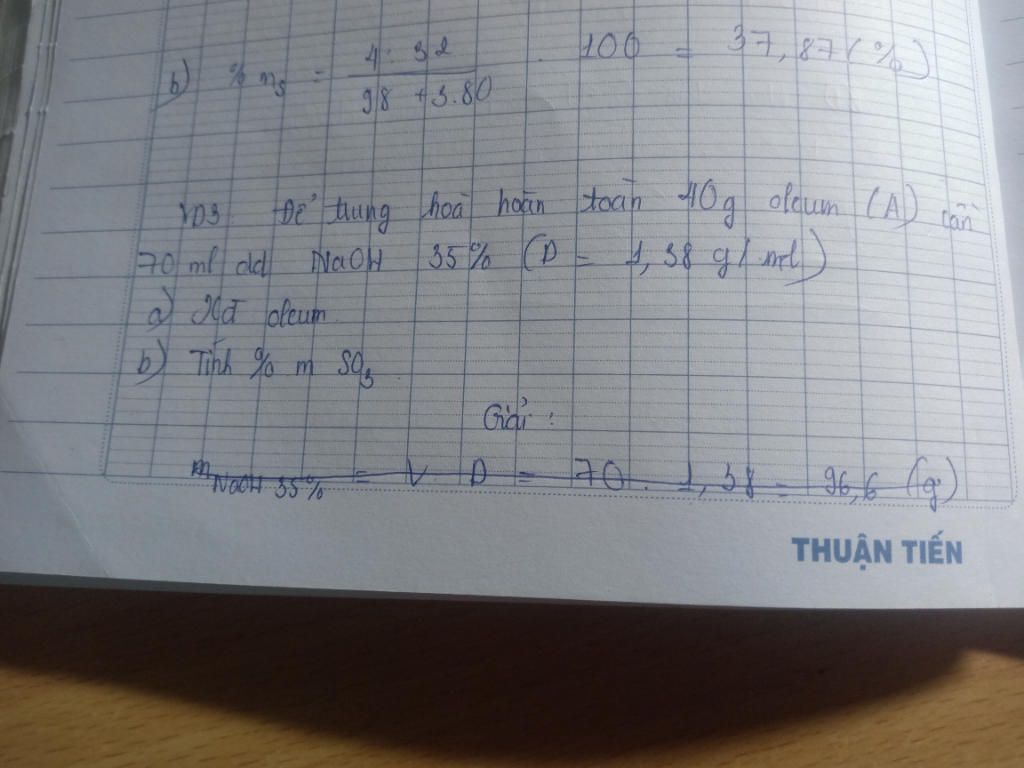 b) % m_S = 4. 32 / 98 + 3.80 . 100 = 37,87 (%)
VD3. Để trung hoà hoàn toàn 40g oleum (A) cần
70 ml dd NaOH 35% (D = 1,38 g/ml)
a) Xđ oleum.
b) Tính % m SO₃
Giải :
m NaOH 35% = V. D = 70 . 1,38 = 96,6 (g)
THUẬN TIẾN